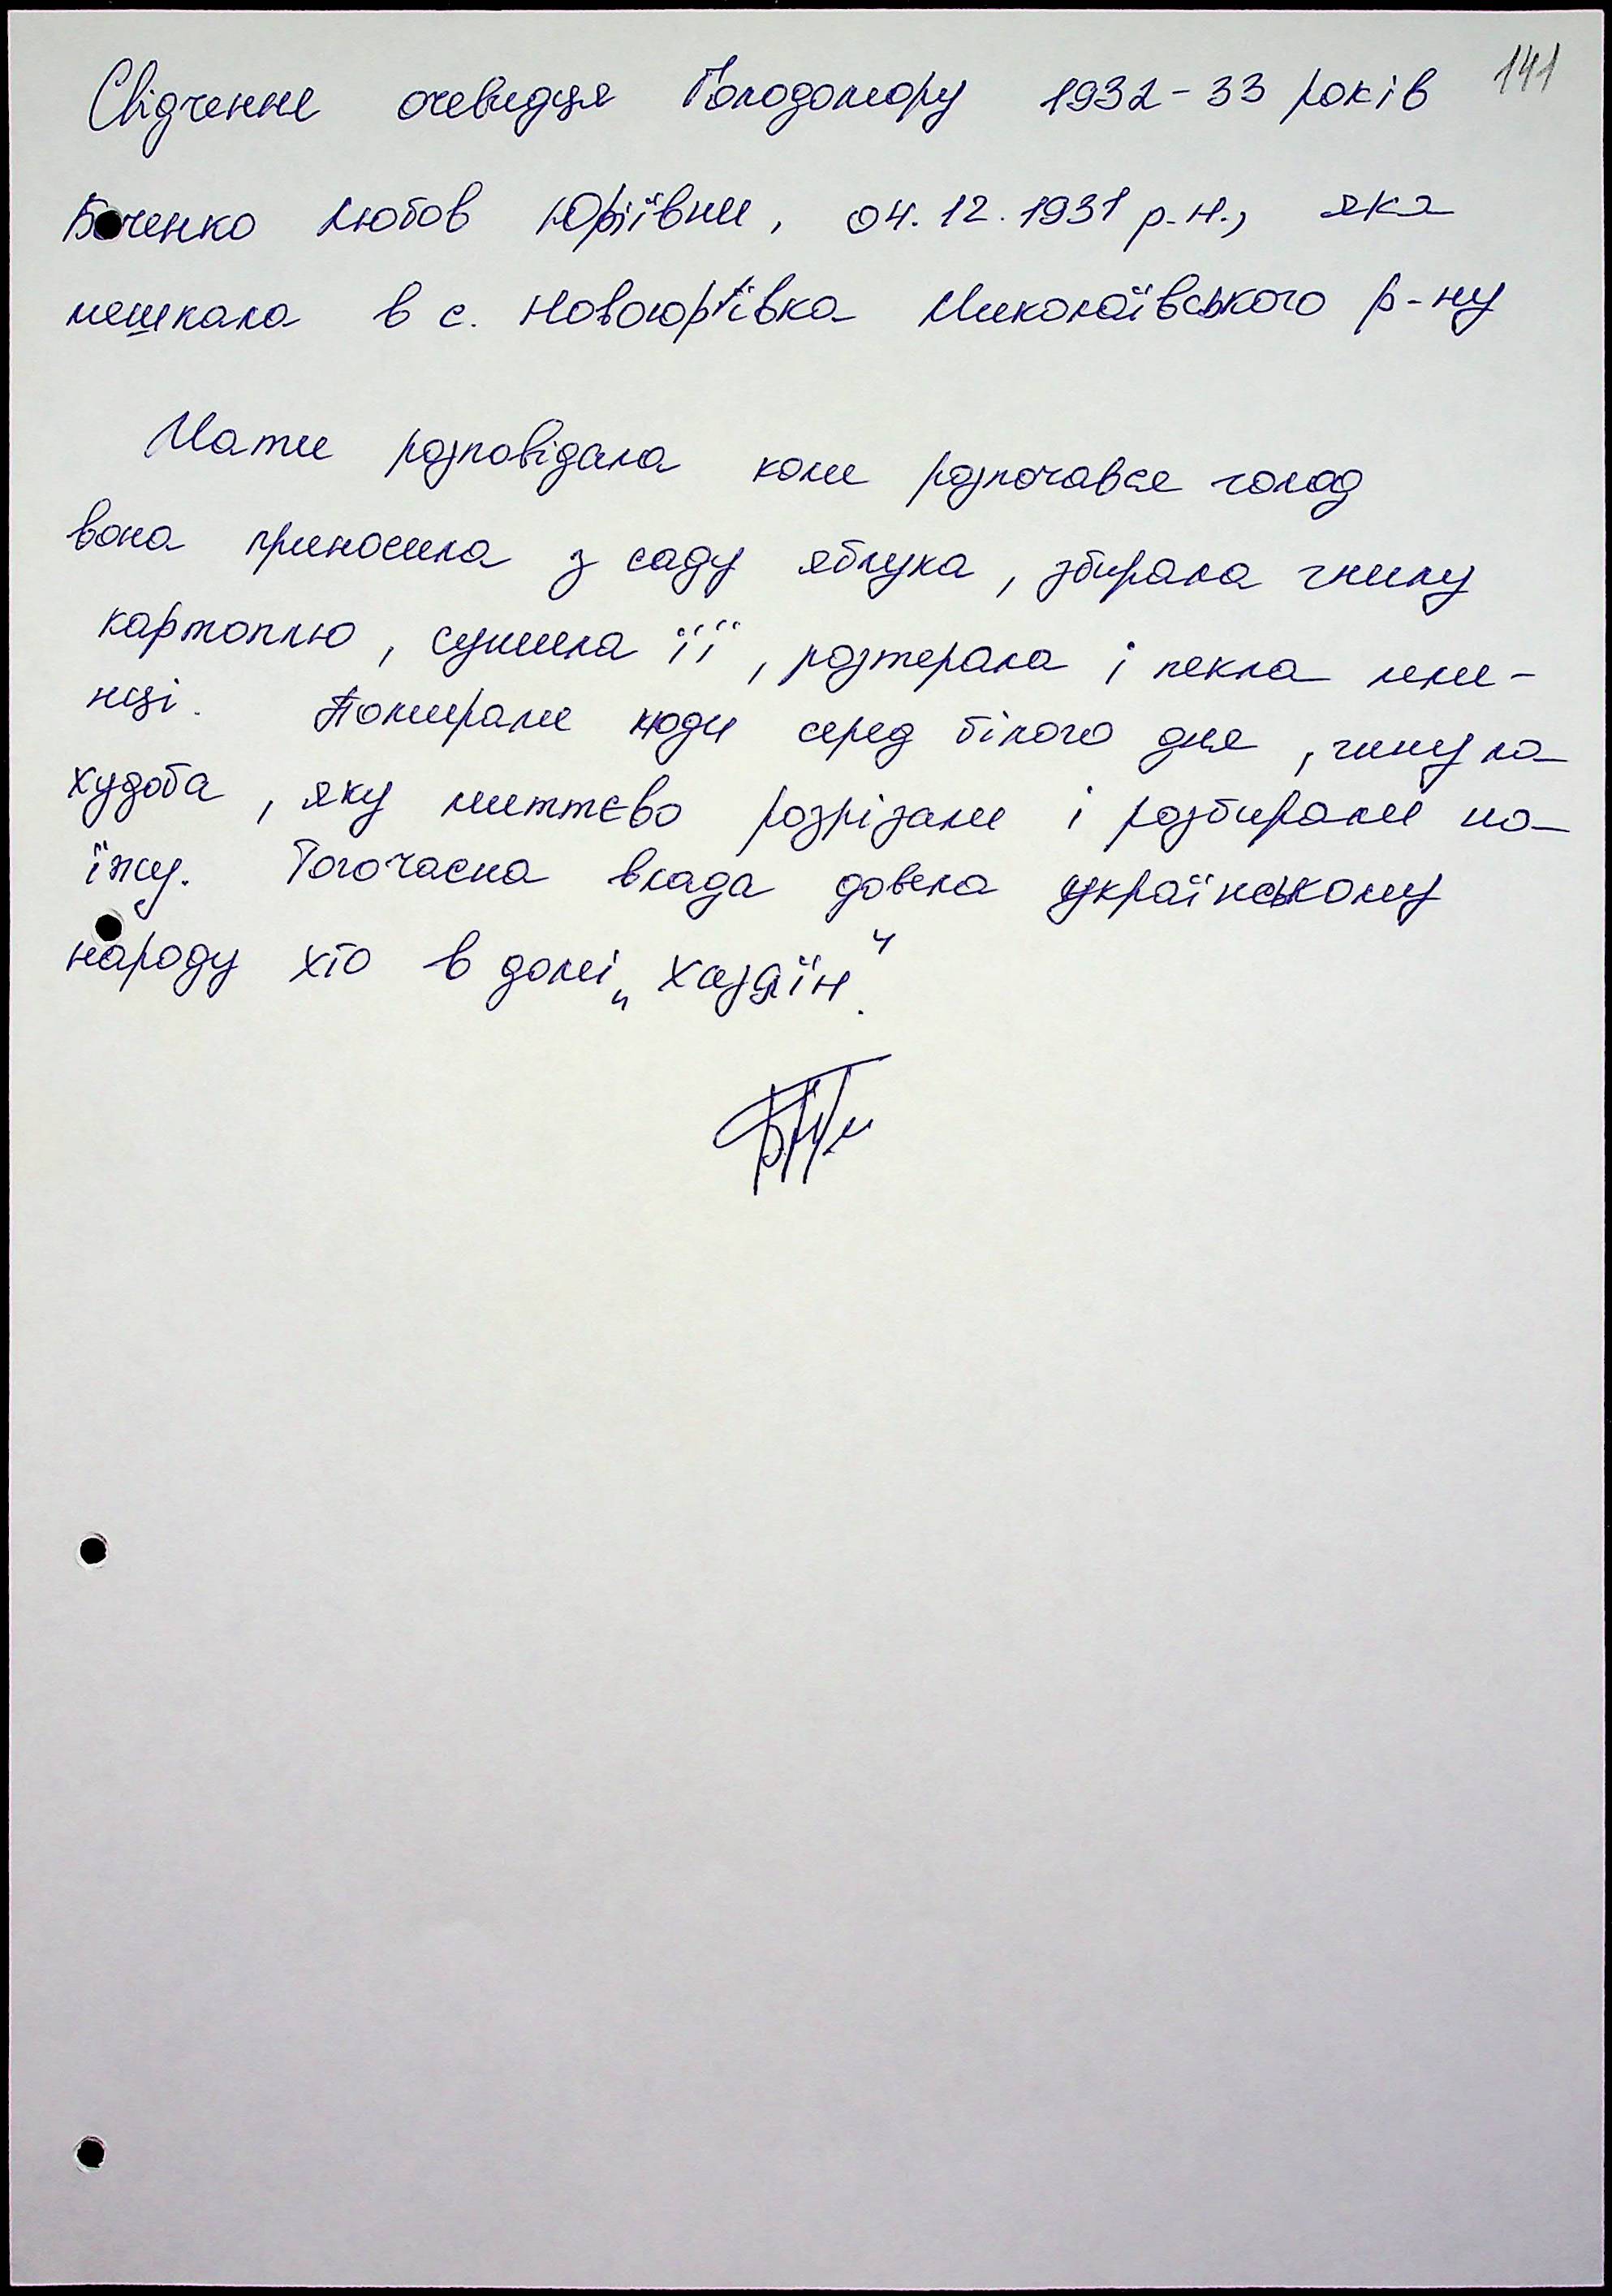 141
Свідчення очевидця Голодомору 1932-33 років
Юріївни, 04.12.1931 р.н., яка
мешкала в с. Новоюр'ївка Миколаївського р-ну
Мати розповідала коли розпочався голод
вона приносила з саду яблука, збирала гнилу
картоплю, сушила її, розтерала і пекла мли-
нці. Помирали люди серед білого дня, гинула
худоба, яку миттєво розрізали і розбирали на
їжу. Тогочасна влада довела українському
народу хто в домі „хазяїн".